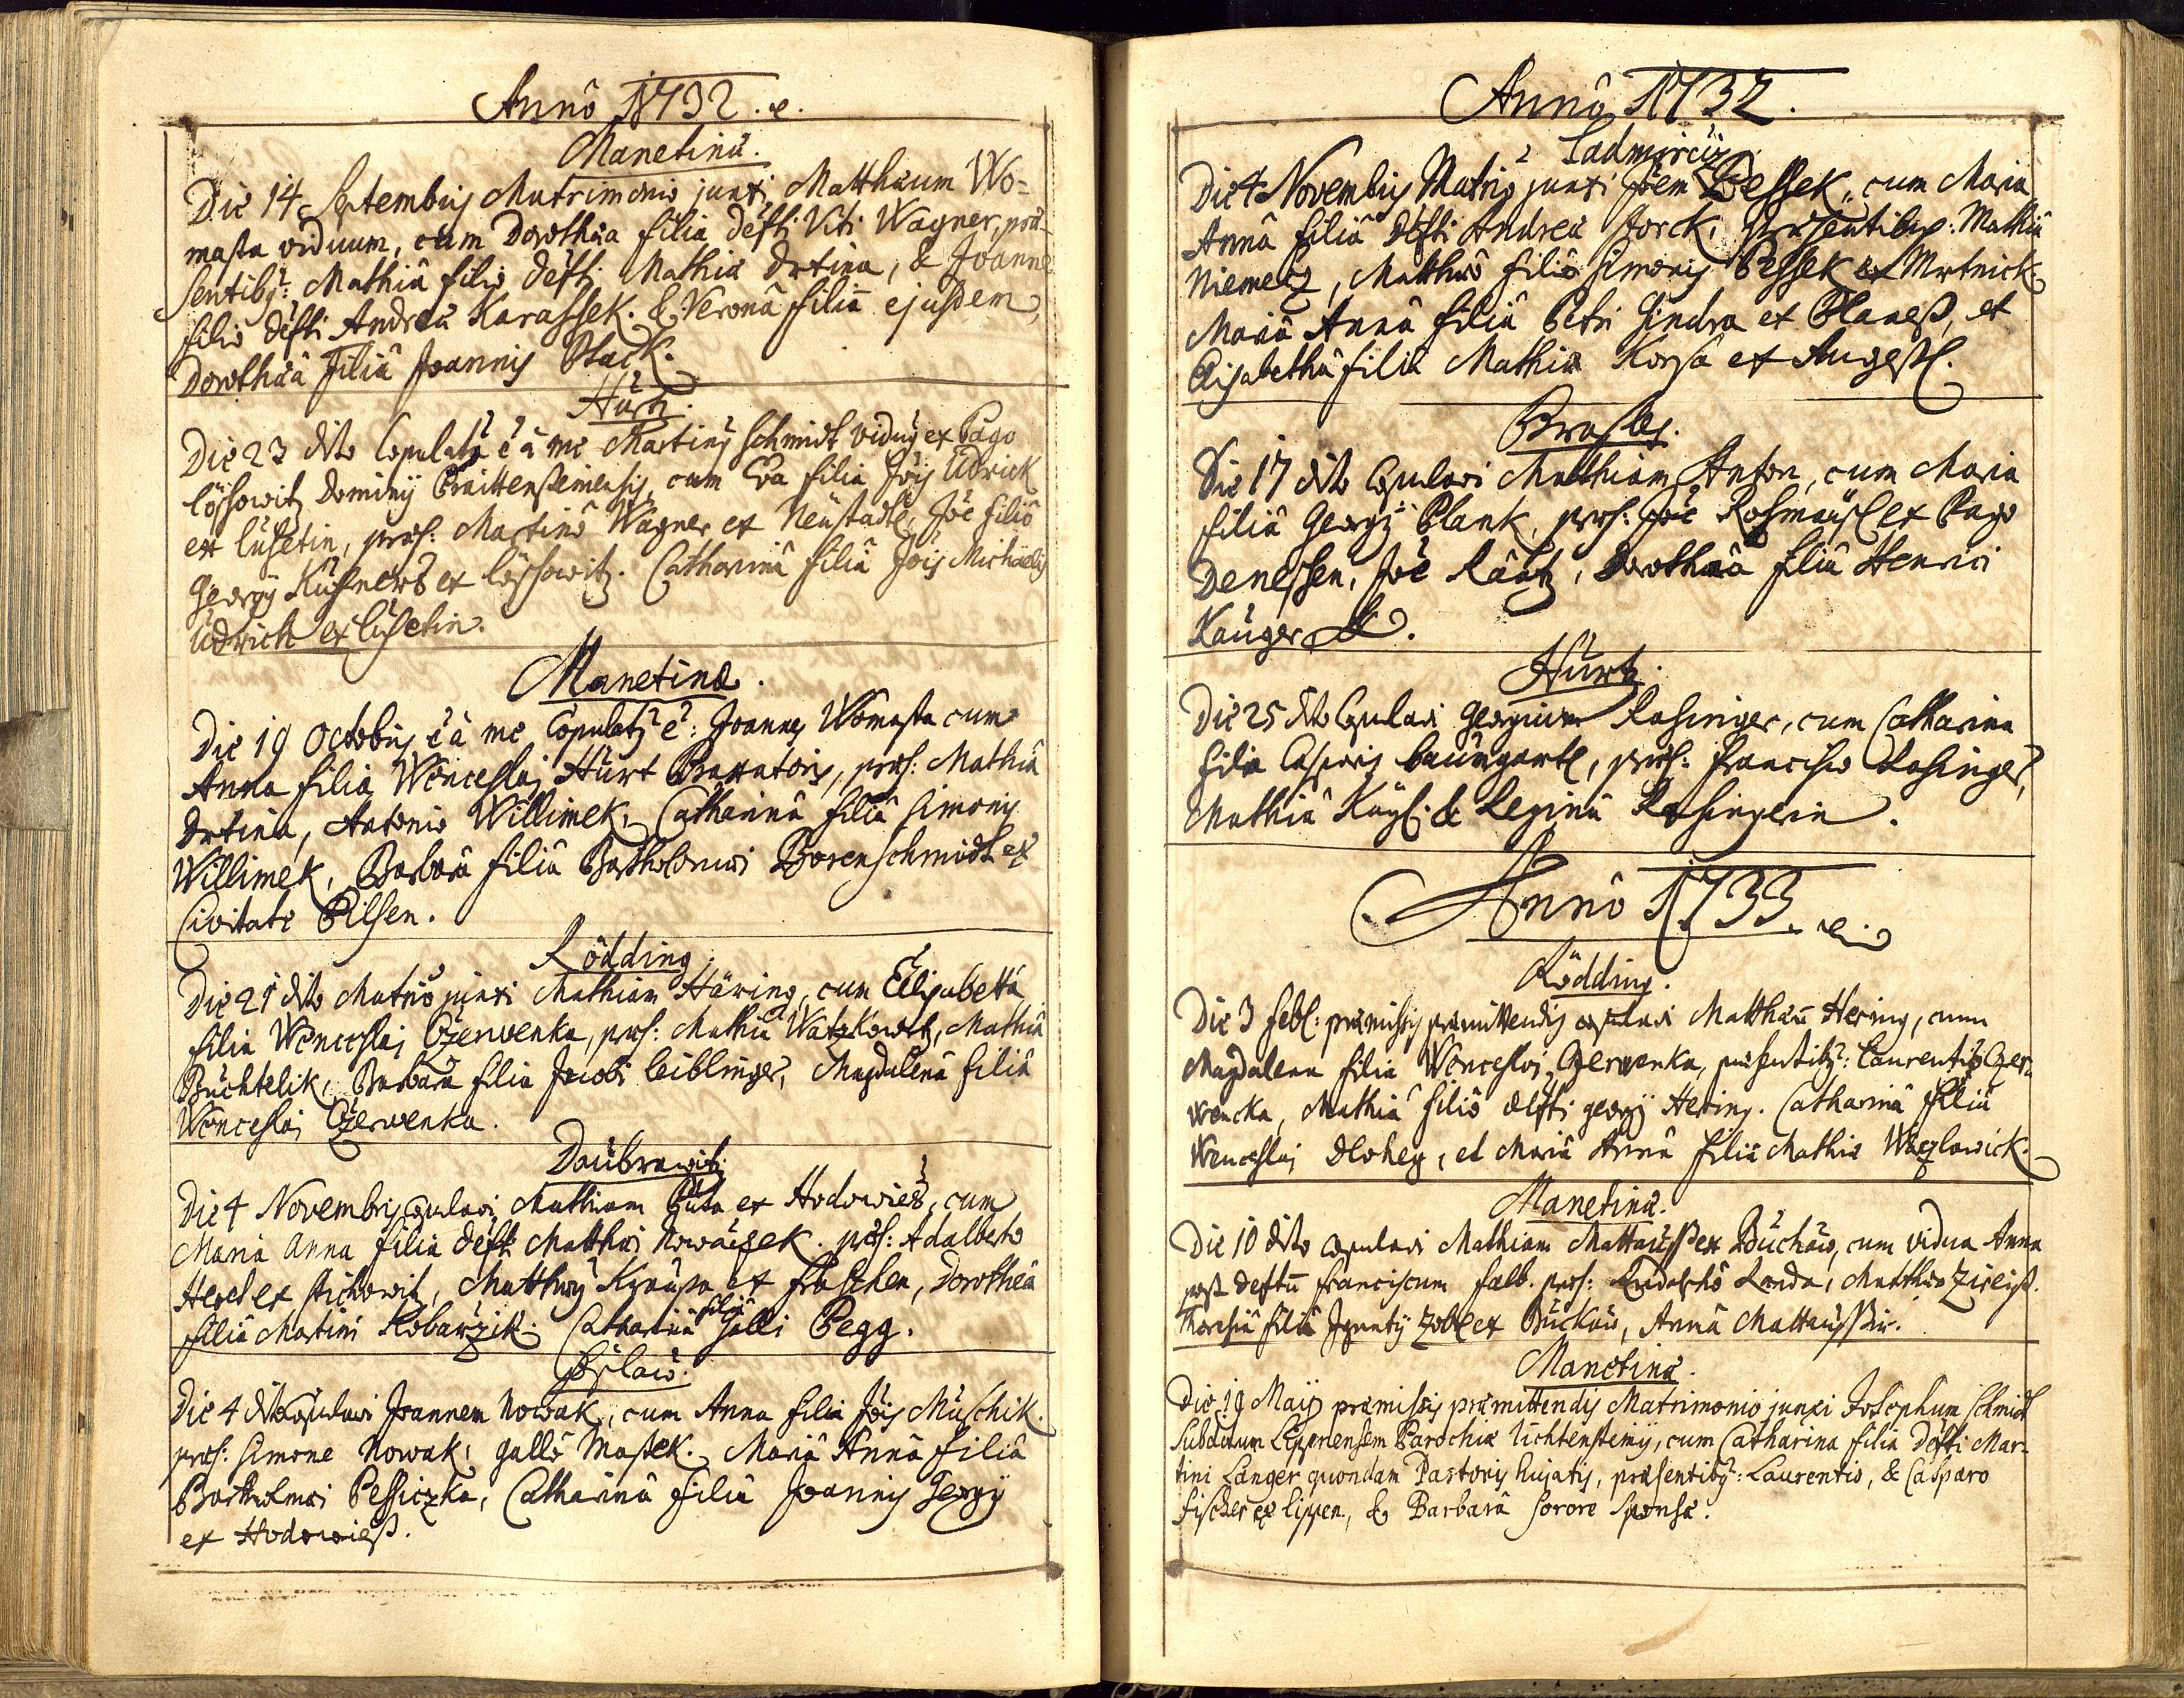 Annô 1732. e.
Manetinæ.
Die 14 Septembris Matrimonio junxi Matthæum Wo=
masta viduum, cum Dorothæa filia defti Viti Wagner, præ-
sentibq: Mathiâ filio defti Mathiæ Drtina, & Joanne
filio defti Andreæ Karassek. & Veronâ filiâ ejusdem,
Dorothæâ Filiâ Joannis Ptack.
Hurtz.
Die 23 dito Copulatq ẽ à me Martinq Schmidt viduq ex Pago
Löschowitz Dominÿ Breittensteinensis, cum Eva filia Jois Udrick
ex Lusetin, præs: Martinô Wagner ex Neüstadtl, Joe filiô
Georgÿ ex Löschowitz. Catharinâ filiâ Jois Michaelis
Udrich ex Lusetin.
Manetinæ.
Die 19 Octobris ẽ à me Copulatq ẽ: Joannes Womasta cum
Anna filia Wenceslai Hurt Braxatoris, præs: Mathiâ
Drtina, Antonio Willimek, Catharinâ filiâ Simonis
Willimek, Barbarâ filiâ Bartholomæi Borenschmidt ex
Civitate Pilsen.
Rödding.
Die 21 dito Matriô junxi Mathiam Häring, cum Elisabetta
filia Wenceslai Czerwenka, præs: Mathiâ Watzkowetz, Mathiâ
Buchtelik, Barbarâ filia Jacobi Leiblinger, Magdalenâ filiâ
Wenceslai Czerwenka.
Daübrawitz.
Die 4 Novembris copulavi Mathiam Guta ex Hodowiess, cum
Maria Anna filia defti Matthæi Nowaczek. præs: Adalberto
Herel ex Stichowitz, Matthæus ex, Dorotheâ
filiâ Martini Kobarzik. Catharinâ filiâ Galli Pegg.
Die 4 dito Copulavi Joannem Nowak, cum Anna filia Jois Muschik.
præs: Simone Nowak, Gallô Mastek. Mariâ Annâ filiâ
Bartholmæi Pessiczka, Catharinâ filiâ Joannis Georgÿ
ex Hodowiess.
Annô 1732.
Ladmirciÿ
Die 4 Novembris Matrio junxi Joem Pessek, cum Maria
Annâ filiâ defti Andreæ Jorck, præsentibq: Mathiâ
Niemetz, Matthæô filiô Simonis Pessek ex Mrtnick,
Mariâ Annâ filiâ Petri Hindra ex Planess, et
Elisabethâ filiâ Mathiæ Korsa ex Augestl.
Brasles.
Die 17 dito Copulavi Mathiam Anton, cum Maria
filiâ Georgÿ Plank, præs: Joe Rosmaisl ex Pago
Denessen, Joe Raatz, Dorothæâ filiâ Henrici
Kauger &.
Hurtz.
Die 25 dito Copulavi Georgium Rasinger, cum Catharina
filia Casparis Baumgartl, præs: Francisco Rasinger,
Mathiâ Kaysl. & Reginâ Rasingerin.
Annô 1733.
Rödding.
Die 3 Febr: præmissis præmittendis copulavi Matthæu Hering, cum
Magdalena filia Wenceslai Czerwenka, præsentibq: Laurentio Czer-
wencka, Mathiâ filiô defti Georgÿ Hering. Catharinâ filiâ
Wenceslai Dlohey, et Mariâ Annâ filiâ Mathiæ Waczlawick.
Manetinæ.
Die 10 dito copulavi Mathiam Mattaüss ex Buchau, cum vidua Anna
post deftu Franciscum Falb. præs: Rudolphô Lenda, Matthæo Zireiss.
Theresiâ filiâ Ignatÿ Zobl ex Buckau, Annâ Mattaüssin.
Manetinæ.
Die 19 Maÿ præmissis præmittendis Matrimonio junxi Josephum Schmidt
Subditum Lippnensem Parochiæ Lichtensteinÿ, cum Catharina filia defti Mar-
tini Langer quondam Pastoris hujatis, præsentibq: Laurentio, & Casparo
Fischer ex Lippen, & Barbarâ sorore Sponsæ.